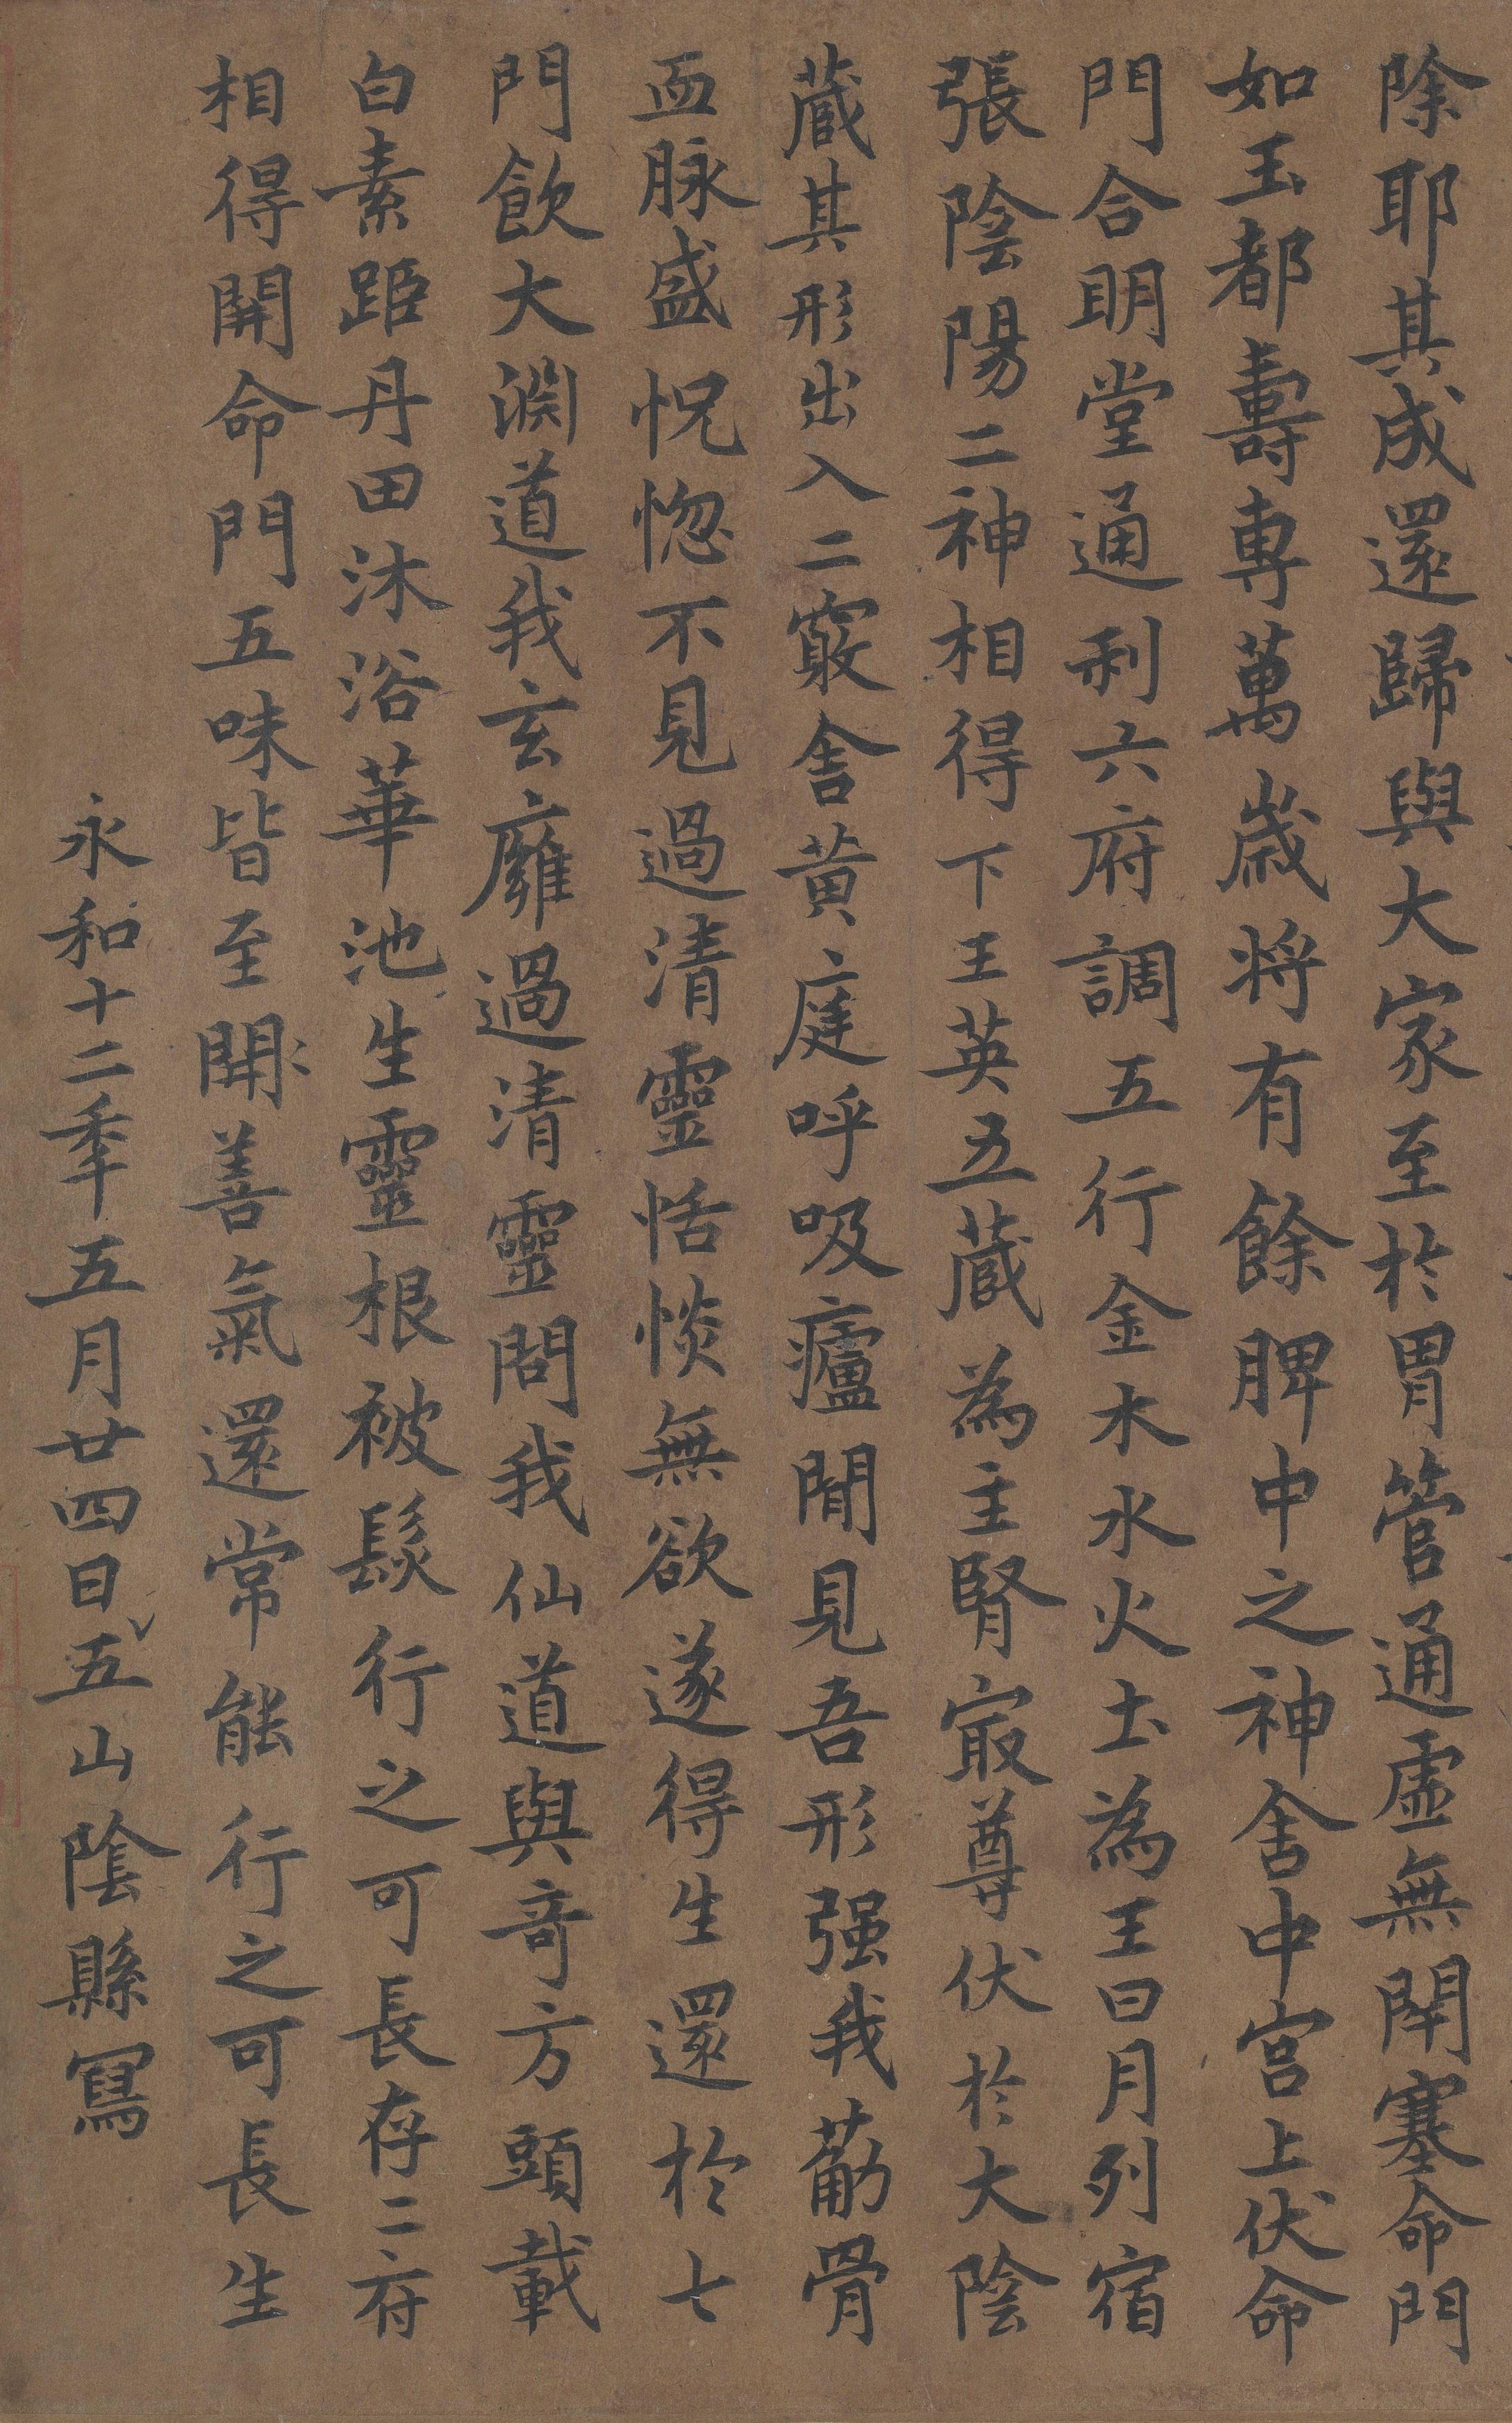 除耶其成還歸與大家至於胃管通虛無閇塞命門
如玉都壽專萬歲将有餘脾中之神舍中宮上伏命
門合明堂通利六府調五行金木水火土為王日月列宿
張陰陽二神相得下王英五蔵為主腎冣尊伏於大陰
蔵其形出入二竅舍黄庭呼吸廬間見吾形强我荕骨
血脉盛怳惚不見過清靈恬惔無欲遂得生還於七
門飲大淵道我玄廱過清靈問我仙道與竒方頭載
白素距丹田沐浴華池生靈根被髮行之可長存二府
相得開命門五味皆至開善氣還常能行之可長生
永和十二秊五月廿四日五山陰縣寫